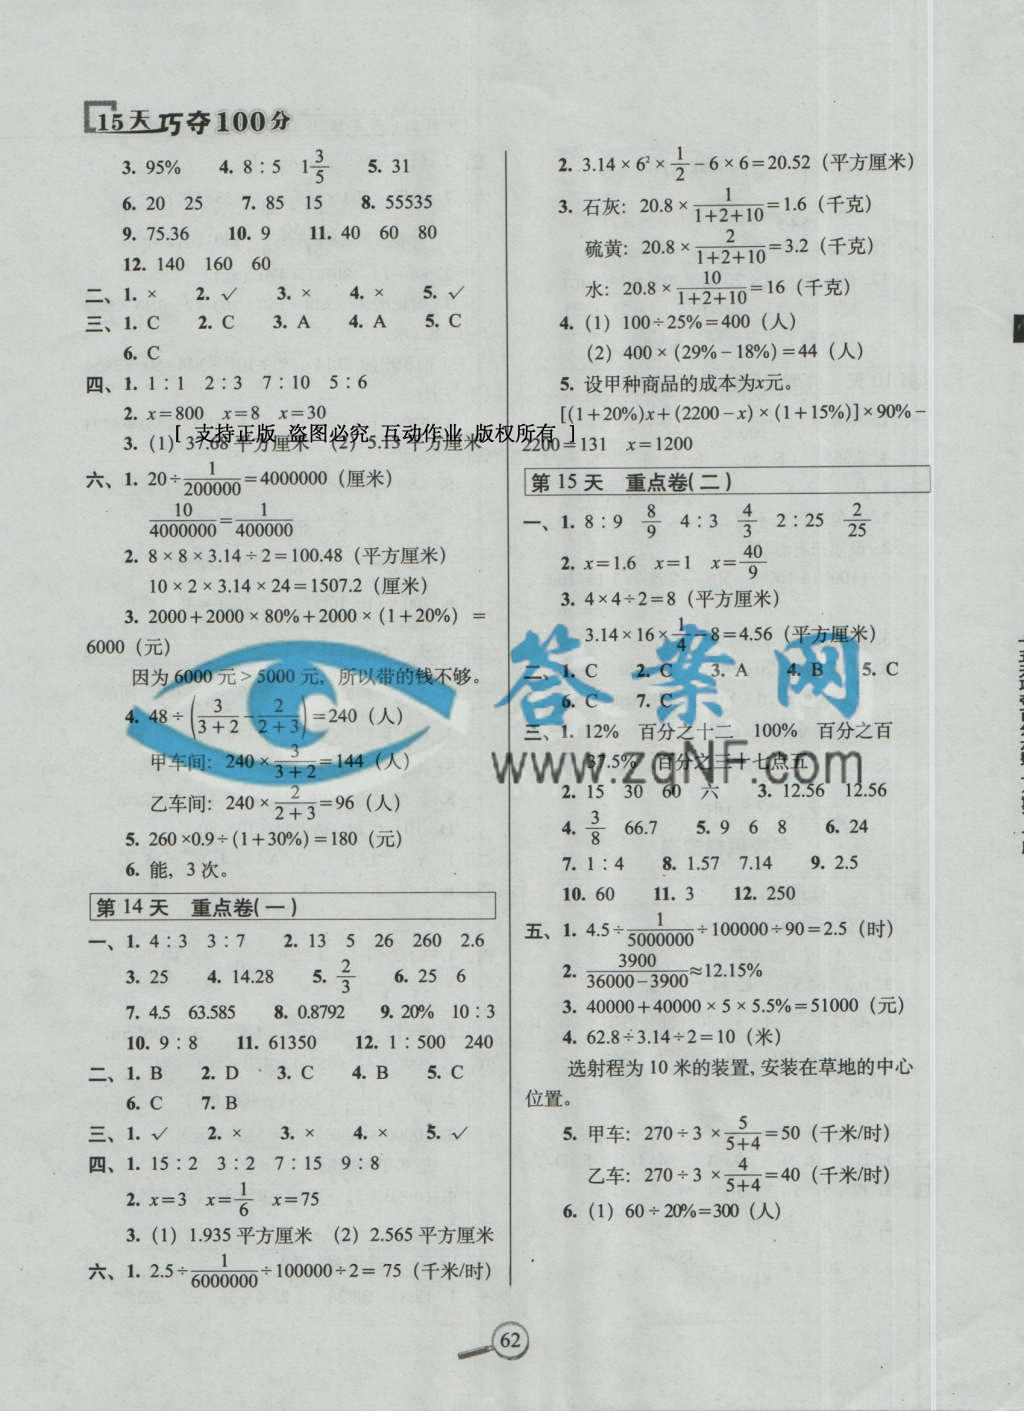 15天巧夺100分
3. 95%  4. 8∶5  1 3/5  5. 31
6. 20  25  7. 85  15  8. 55535
9. 75.36  10. 9  11. 40  60  80
12. 140  160  60
二、1. ×  2. ✓  3. ×  4. ×  5. ✓
三、1. C  2. C  3. A  4. A  5. C
6. C
四、1. 1∶1  2∶3  7∶10  5∶6
2. x=800  x=8  x=30
3. (1) 37.68 平方厘米  (2) 5.13 平方厘米
[ 支持正版 盗图必究 互动作业 版权所有 ]
六、1. 20÷1/200000=4000000（厘米）
10/4000000=1/400000
2. 8×8×3.14÷2=100.48（平方厘米）
10×2×3.14×24=1507.2（厘米）
3. 2000+2000×80%+2000×(1+20%) =
6000（元）
因为 6000 元>5000 元，所以带的钱不够。
4. 48÷(3/(3+2)-2/(2+3))=240（人）
甲车间：240×3/(3+2)=144（人）
乙车间：240×2/(2+3)=96（人）
5. 260×0.9÷(1+30%)=180（元）
6. 能，3 次。
第 14 天  重点卷(一)
一、1. 4∶3  3∶7  2. 13  5  26  260  2.6
3. 25  4. 14.28  5. 2/3  6. 25  6
7. 4.5  63.585  8. 0.8792  9. 20%  10∶3
10. 9∶8  11. 61350  12. 1∶500  240
二、1. B  2. D  3. C  4. B  5. C
6. C  7. B
三、1. ✓  2. ×  3. ×  4. ×  5. ✓
四、1. 15∶2  3∶2  7∶15  9∶8
2. x=3  x=1/6  x=75
3. (1) 1.935 平方厘米  (2) 2.565 平方厘米
六、1. 2.5÷1/6000000÷100000÷2= 75（千米/时）
2. 3.14×6²×1/2-6×6=20.52（平方厘米）
3. 石灰：20.8×1/(1+2+10)=1.6（千克）
硫黄：20.8×2/(1+2+10)=3.2（千克）
水：20.8×10/(1+2+10)=16（千克）
4. (1) 100÷25%=400（人）
(2) 400×(29%-18%)=44（人）
5. 设甲种商品的成本为x元。
[(1+20%)x+(2200-x)×(1+15%)]×90%-
2200=131  x=1200
第 15 天  重点卷(二)
一、1. 8∶9  8/9  4∶3  4/3  2∶25  2/25
2. x=1.6  x=1  x=40/9
3. 4×4÷2=8（平方厘米）
3.14×16×1/4-8=4.56（平方厘米）
二、1. C  2. C  3. A  4. B  5. C
6. C  7. C
三、1. 12%  百分之十二  100%  百分之百
37.5%  百分之三十七点五
2. 15  30  60  六  3. 12.56  12.56
4. 3/8  66.7  5. 9  6  8  6. 24
7. 1∶4  8. 1.57  7.14  9. 2.5
10. 60  11. 3  12. 250
五、1. 4.5÷1/5000000÷100000÷90=2.5（时）
2. 3900/(36000-3900)≈12.15%
3. 40000+40000×5×5.5%=51000（元）
4. 62.8÷3.14÷2=10（米）
选射程为 10 米的装置，安装在草地的中心
位置。
5. 甲车：270÷3×5/(5+4)=50（千米/时）
乙车：270÷3×4/(5+4)=40（千米/时）
6. (1) 60÷20%=300（人）
答案网
www.zqNF.com
62